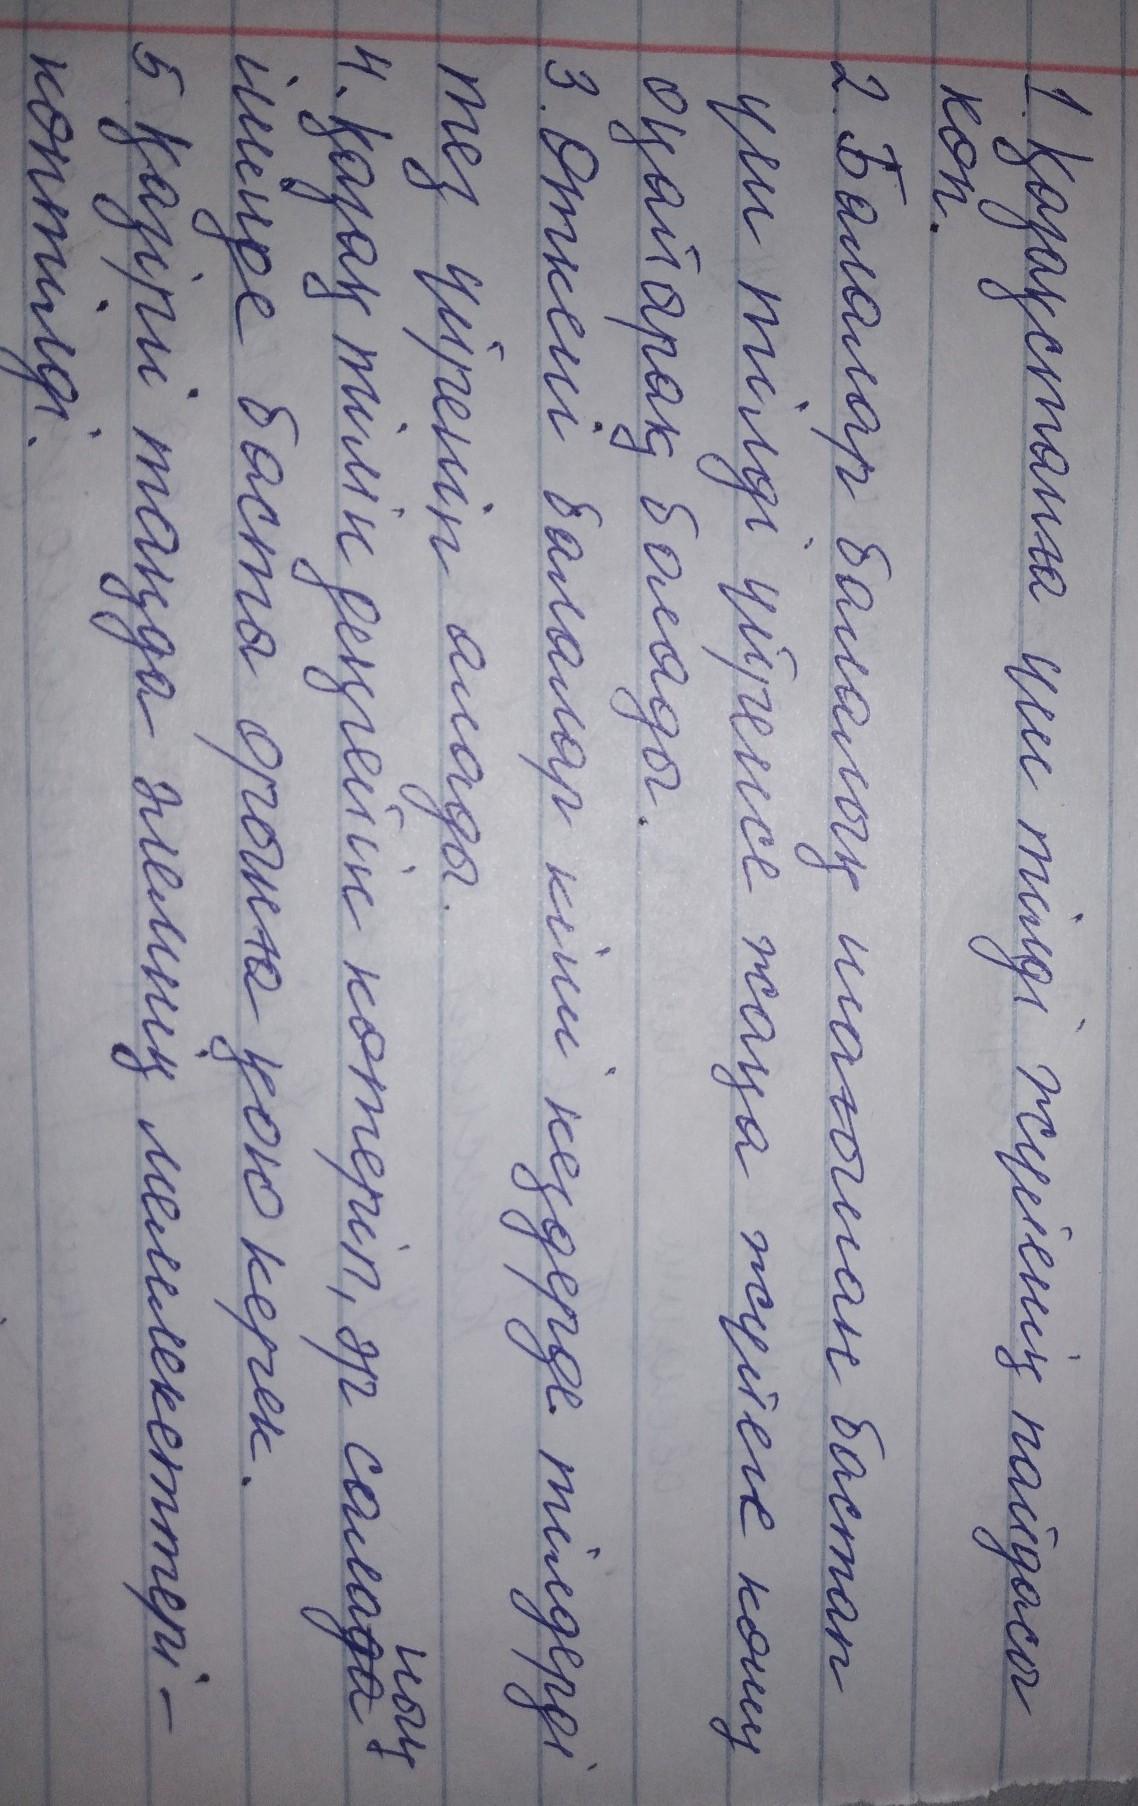 1. Қазақстанға үш тілді жүйенің пайдасы
көп.
2. Балалар балалық шағынан бастап
үш тілді үйренсе жаңа жүйеге көшу
оңайырақ болады.
3. Өткені балалар кіші кездерде тілдерді
тез үйреніп алады.
4. Қазақ тілін деңгейін көтеріп, әр саланың
ішінде басты орынға қою керек.
5 Қазіргі таңда әлемнің мемлекеттері -
көптілді.